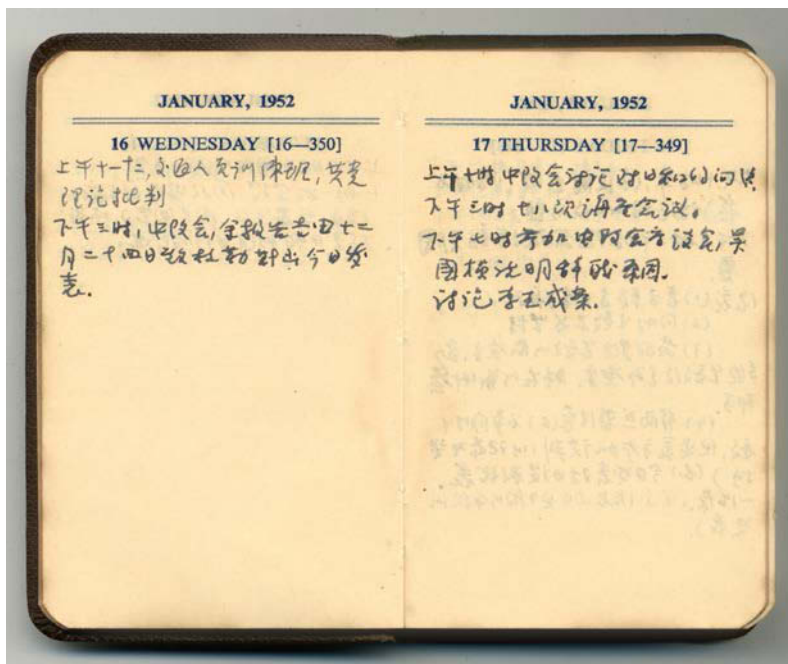 JANUARY, 1952
16 WEDNESDAY [16—350]
上午十一十二,
人员训练班,共党
理论批判
下午三时,中改会,
十二
月二十四日
今日发
表.
JANUARY, 1952
17 THURSDAY [17—349]
上午十时中改会讨论对日和约问题
下午三时七八次调查会议。
下午七时参加中改会座谈会,吴
国桢说明辞职原因.
讨论李玉成案.